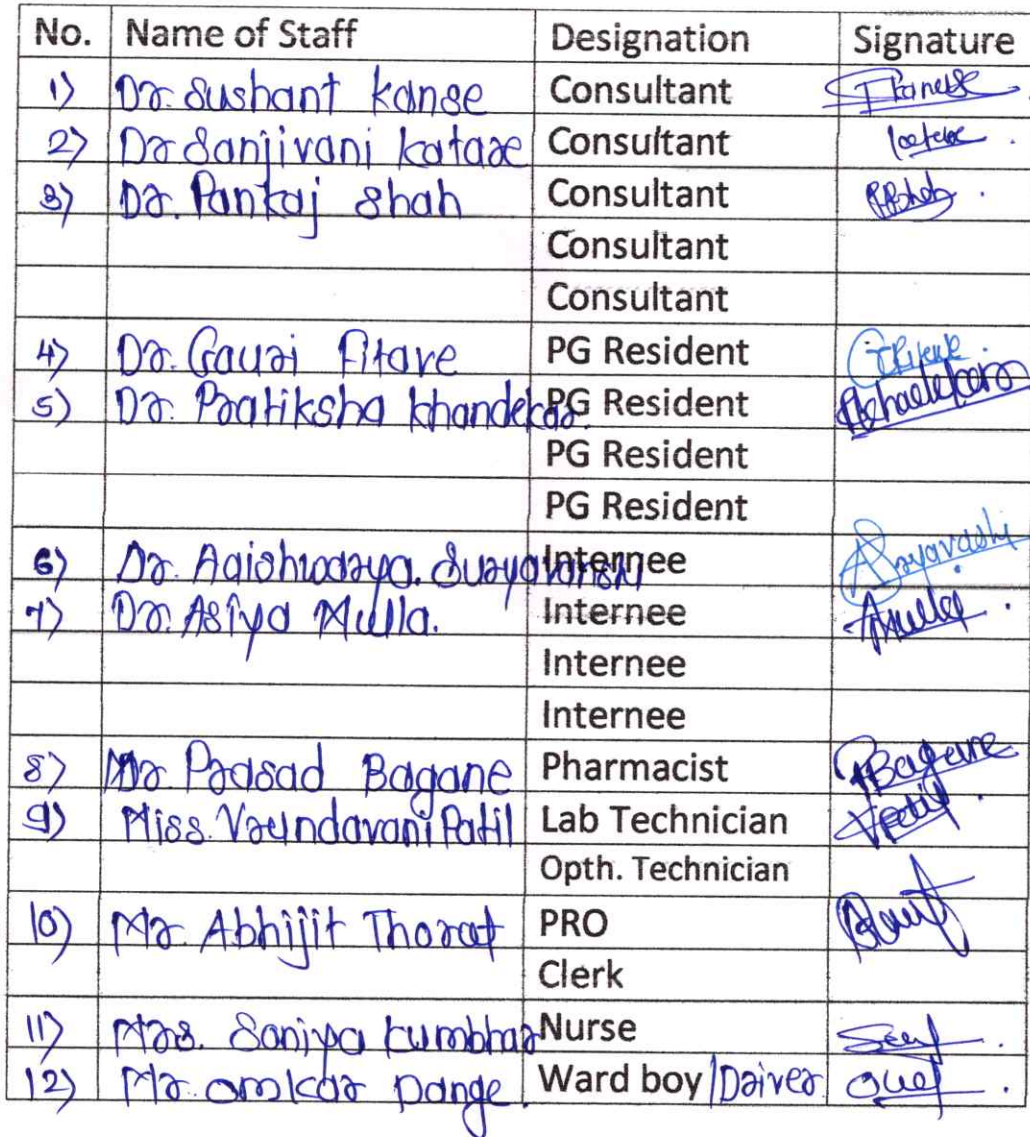 No. Name of Staff Designation Signature
1) Dr. Sushant Kanse Consultant
2) Dr Sanjivani Katare Consultant
3) Dr. Pankaj Shah Consultant
Consultant
Consultant
4) Dr. Gauri Fitave PG Resident
5) Dr. Pratiksha Khandekar. PG Resident
PG Resident
PG Resident
6) Dr. Aaishwarya. Suryavanshi Internee
7) Dr. Asiya Mulla. Internee
Internee
Internee
8) Mr Prasad Bagane Pharmacist
9) Miss. Vrundavani Patil Lab Technician
Opth. Technician
10) Mr. Abhijit Thorat PRO
Clerk
11) Mrs. Saniya Kumbhar Nurse
12) Mr. Omkar Dange. Ward boy /Driver